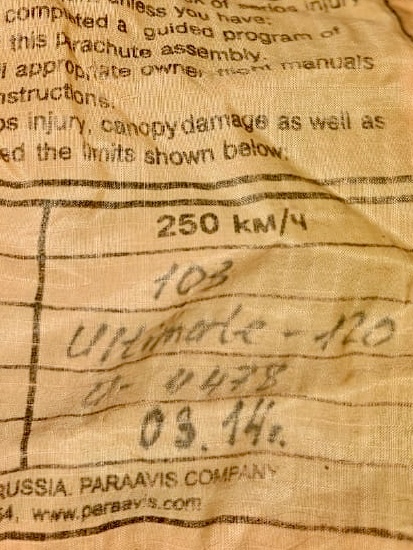 unless you have:
completed a guided program of
this parachute assembly.
appropriate owner manuals
instructions.
injury, canopy damage as well as
the limits shown below:
250 км/ч
103
Ultimate - 120
0478
03.14г.
RUSSIA. PARAAVIS COMPANY
www.paraavis.com